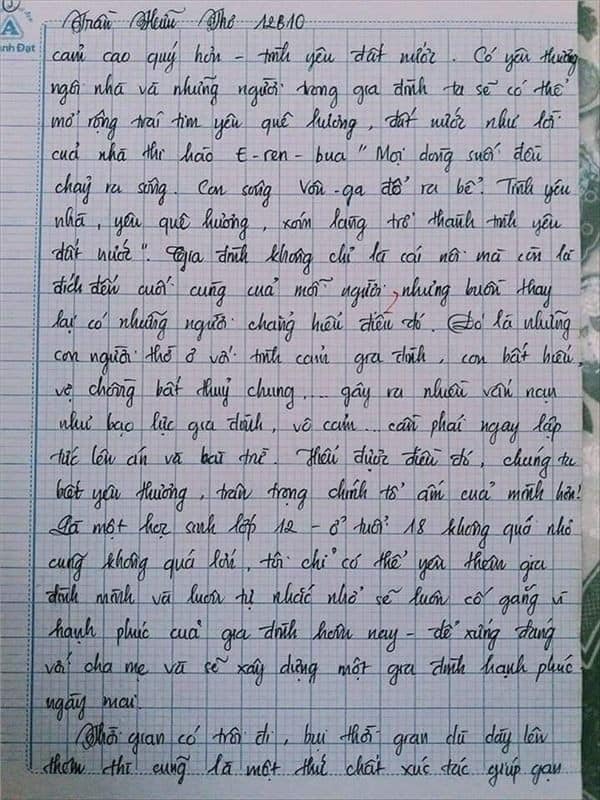 Trần Hữu Thọ 12B10
A
nh Đạt
cảm cao quý hơn - tình yêu đất nước. Có yêu thương
ngôi nhà và những người trong gia đình ta sẽ có thể
mở rộng trái tim yêu quê hương, đất nước như lời
của nhà thi hào E-ren-bua "Mọi dòng suối đều
chảy ra sông. Con sông Vôn-ga đổ ra bể. Tình yêu
nhà, yêu quê hương, xóm làng trở thành tình yêu
đất nước". Gia đình không chỉ là cái nôi mà còn là
đích đến cuối cùng của mỗi người, nhưng buồn thay
lại có những người chẳng hiểu điều đó. Đó là những
con người thờ ơ với tình cảm gia đình, con bất hiếu,
vợ chồng bất thuỷ chung... gây ra nhiều vấn nạn
như bạo lực gia đình, vô cảm... cần phải ngay lập
tức lên án và bài trừ. Hiểu được điều đó, chúng ta
biết yêu thương, trân trọng chính tổ ấm của mình hơn!
Là một học sinh lớp 12 - ở tuổi 18 không quá nhỏ
cũng không quá lớn, tôi chỉ có thể yêu thêm gia
đình mình và luôn tự nhắc nhở sẽ luôn cố gắng vì
hạnh phúc của gia đình hôm nay - để xứng đáng
với cha mẹ và sẽ xây dựng một gia đình hạnh phúc
ngày mai.
Thời gian có trôi đi, bụi thời gian dù dày lên
thêm thì cũng là một thứ chất xúc tác giúp gạn